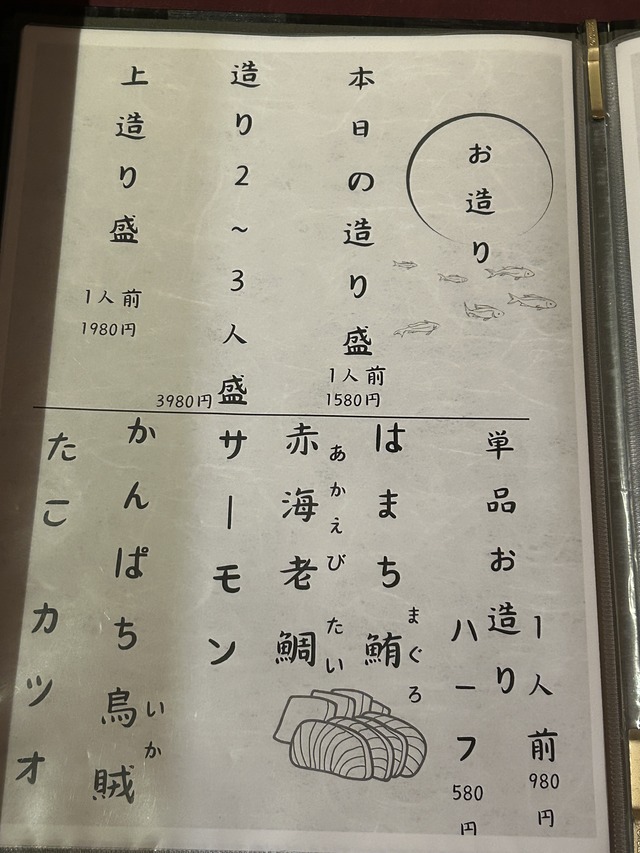 お造り
本日の造り盛
1人前
1580円
造り2～3人盛
3980円
上造り盛
1人前
1980円
単品お造り
1人前
980
円
ハーフ
580
円
はまち
鮪
まぐろ
赤海老
あかえび
鯛
たい
サーモン
かんぱち
烏賊
いか
たこ
カツオ